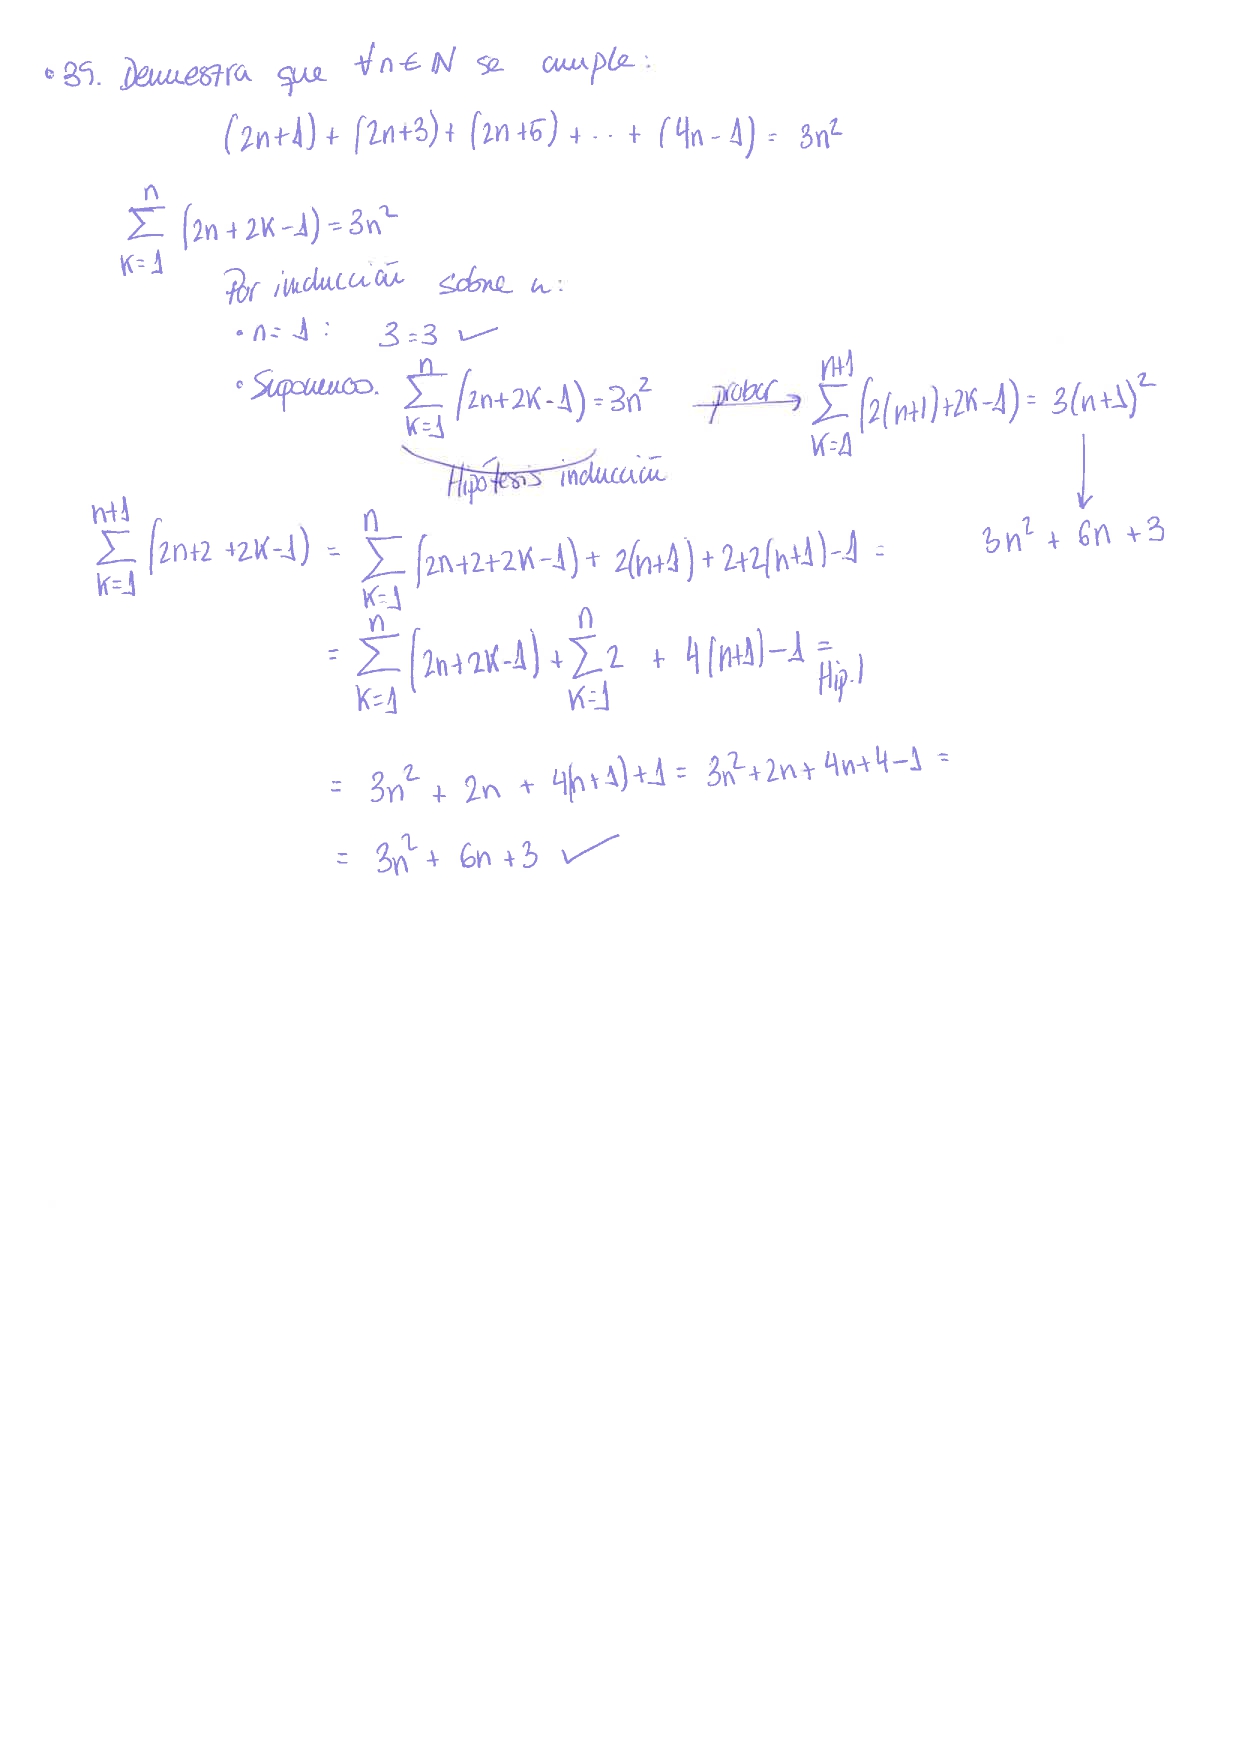 • 35. Demuestra que ∀n∈ℕ se cumple:
(2n+1) + (2n+3) + (2n+5) + ... + (4n-1) = 3n²
∑_{k=1}^{n} (2n+2k-1) = 3n²
Por inducción sobre n:
• n=1: 3=3 ✓
• Suponemos. ∑_{k=1}^{n} (2n+2k-1) = 3n² probar → ∑_{k=1}^{n+1} (2(n+1)+2k-1) = 3(n+1)²
Hipótesis inducción ↓
∑_{k=1}^{n+1} (2n+2+2k-1) = ∑_{k=1}^{n} (2n+2+2k-1) + 2(n+1)+2+2(n+1)-1 = 3n² + 6n + 3
= ∑_{k=1}^{n} (2n+2k-1) + ∑_{k=1}^{n} 2 + 4(n+1)-1 = Hip. I
= 3n² + 2n + 4(n+1)+1 = 3n²+2n+4n+4-1 =
= 3n² + 6n + 3 ✓